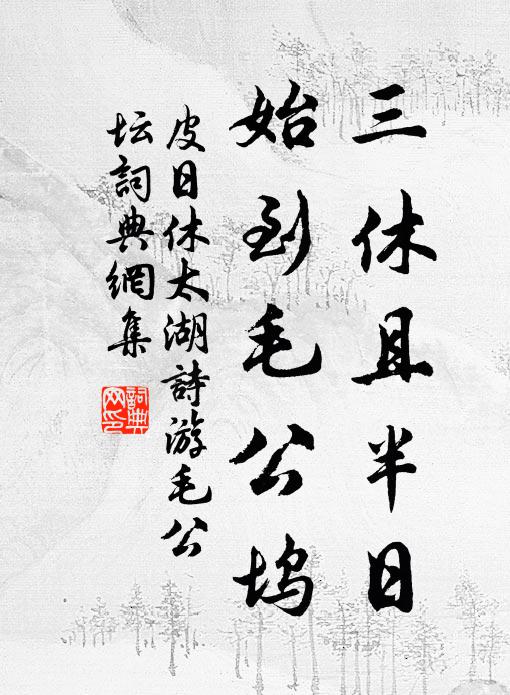 三休且半日
始到毛公坞
皮日休太湖詩游毛公
坛詞典網集
詞典
网印